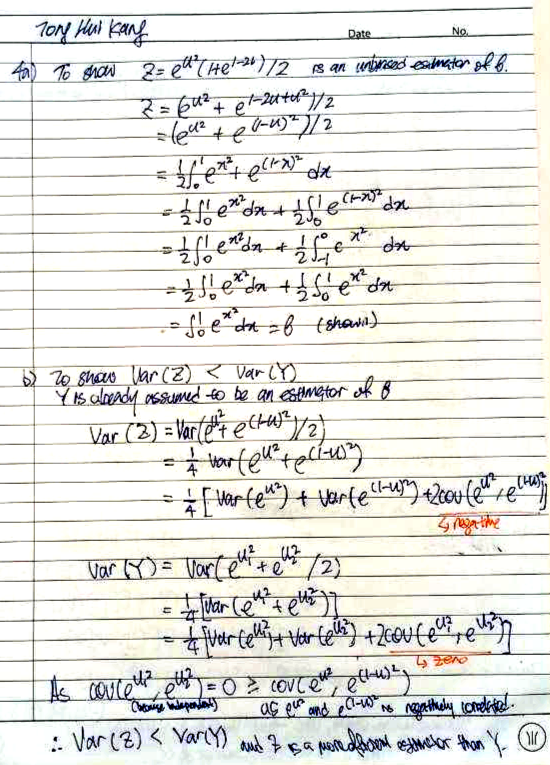 Tong Hui Kang
Date No.
4a) To show Z = e^{U²}(1+e^{1-2U})/2 is an unbiased estimator of θ.
Z = (e^{U²} + e^{1-2U+U²})/2
= (e^{U²} + e^{(1-U)²})/2
= ½∫₀¹ e^{x²} + e^{(1-x)²} dx
= ½∫₀¹ e^{x²} dx + ½∫₀¹ e^{(1-x)²} dx
= ½∫₀¹ e^{x²} dx + ½∫₋₁⁰ e^{x²} dx
= ½∫₀¹ e^{x²} dx + ½∫₀¹ e^{x²} dx
= ∫₀¹ e^{x²} dx = θ (shown)
b) To show Var(Z) < Var(Y)
Y is already assumed to be an estimator of θ
Var(Z) = Var((e^{U²} + e^{(1-U)²})/2)
= ¼ Var(e^{U²} + e^{(1-U)²})
= ¼ [Var(e^{U²}) + Var(e^{(1-U)²}) + 2cov(e^{U²}, e^{(1-U)²})]
↳ negative
Var(Y) = Var(e^{U₁²} + e^{U₂²} /2)
= ¼ [Var(e^{U₁²} + e^{U₂²})]
= ¼ [Var(e^{U₁²}) + Var(e^{U₂²}) + 2cov(e^{U₁²}, e^{U₂²})]
↳ zero
As cov(e^{U₁²}, e^{U₂²}) = 0 ≥ cov(e^{U²}, e^{(1-U)²})
(because independent) as e^{U²} and e^{(1-U)²} is negatively correlated.
∴ Var(Z) < Var(Y) and Z is a more efficient estimator than Y.